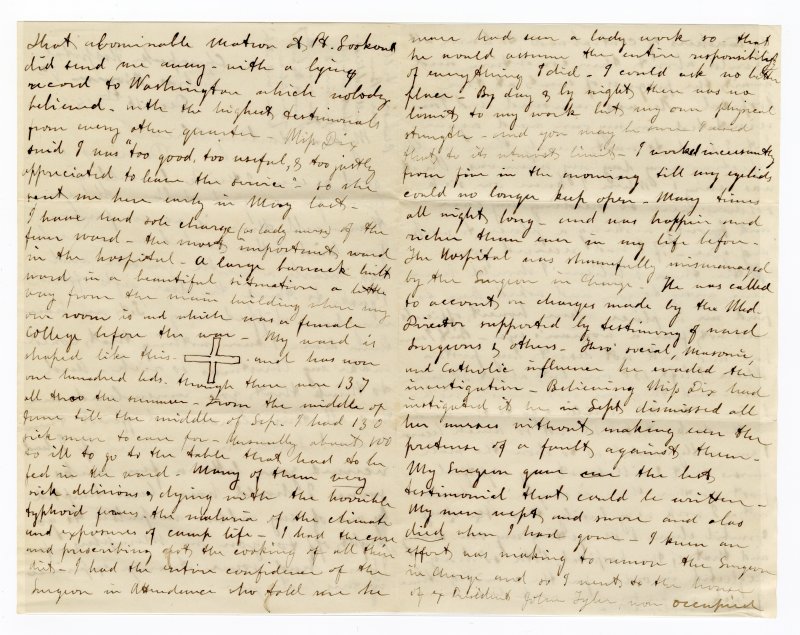 that abominable Matron at Pt. Lookout
did send me away - with a lying
record to Washington which nobody
believed - with the highest testimonials
from every other quarter - Miss Dix
said I was "too good, too useful, & too justly
appreciated to leave the service" - so she
sent me here early in May last -
I have had sole charge (as lady nurse) of the
fever ward - the most important ward
in the hospital - A large barrack built
ward in a beautiful situation a little
way from the main building where my
own room is and which was a female
College before the war - My ward is
shaped like this - and has now
one hundred beds, though there were 137
all thro the summer - From the middle of
June till the middle of Sep. I had 130
sick men to care for - usually about 100
so ill to go to the table that had to be
fed in the ward - Many of them very
sick delirious & dying with the horrible
typhoid fever, the malaria of the climate
and exposures of camp life - I had the care
and prescribing of the cooking of all their
diet - I had the entire confidence of the
Surgeon in Attendance who told me he
never had seen a lady work so - that
he would assume the entire responsibility
of everything I did - I could ask no better
place - By day & by night there was no
limit to my work but my own physical
strength - and you may be sure I used
that to its utmost limit - I worked incessantly
from five in the morning till my eyelids
could no longer keep open - Many times
all night long - and was happier and
richer than ever in my life before -
The Hospital was shamefully mismanaged
by the Surgeon in Charge - He was called
to account on charges made by the Med.
Director supported by testimony of ward
Surgeons & others - Thro' social, Masonic,
and Catholic influence he evaded the
investigation - Believing Miss Dix had
instigated it he in Sept dismissed all
her nurses without making even the
pretense of a fault against them -
My Surgeon gave me the best
testimonial that could be written -
My men wept and swore and also
died when I had gone - I knew an
effort was making to remove the Surgeon
in Charge and so I went to the house
of ex President John Tyler, now occupied